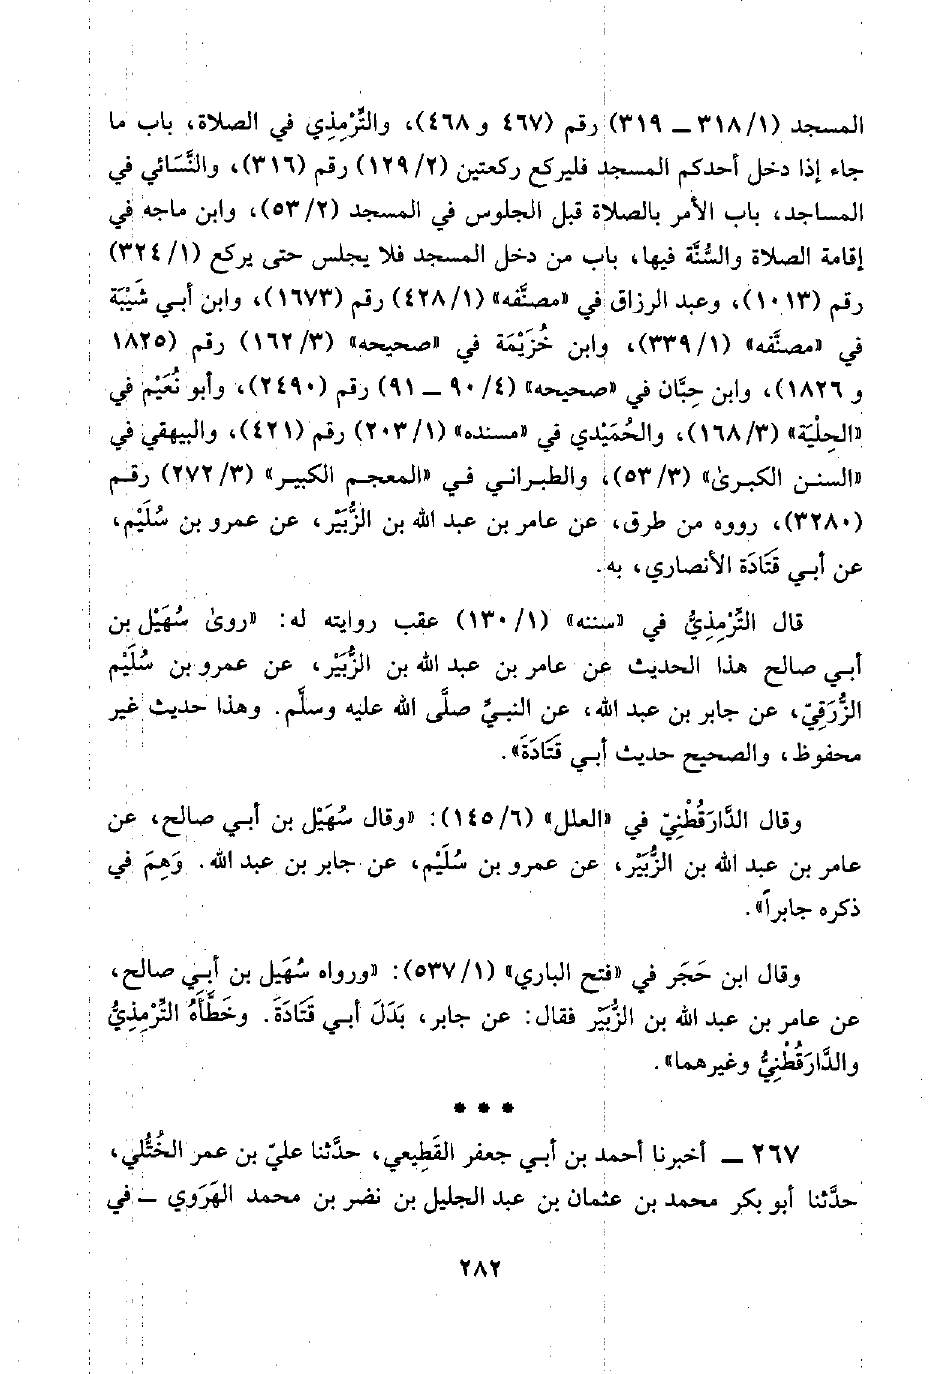 المسجد (١/ ٣١٨ ــ ٣١٩) رقم (٤٦٧ و ٤٦٨)، والتِّرْمِذِي في الصلاة، باب ما
جاء إذا دخل أحدكم المسجد فليركع ركعتين (٢/ ١٢٩) رقم (٣١٦)، والنَّسَائي في
المساجد، باب الأمر بالصلاة قبل الجلوس في المسجد (٢/ ٥٣)، وابن ماجه في
إقامة الصلاة والسُّنَّة فيها، باب من دخل المسجد فلا يجلس حتى يركع (١/ ٣٢٤)
رقم (١٠١٣)، وعبد الرزاق في «مصنَّفه» (١/ ٤٢٨) رقم (١٦٧٣)، وابن أبي شَيْبَة
في «مصنَّفه» (١/ ٣٣٩)، وابن خُزَيْمَة في «صحيحه» (٣/ ١٦٢) رقم (١٨٢٥
و ١٨٢٦)، وابن حِبَّان في «صحيحه» (٤/ ٩٠ ــ ٩١) رقم (٢٤٩٠)، وأبو نُعَيْم في
«الحِلْيَة» (٣/ ١٦٨)، والحُمَيْدي في «مسنده» (١/ ٢٠٣) رقم (٤٢١)، والبيهقي في
«السنن الكبرىٰ» (٣/ ٥٣)، والطبراني في «المعجم الكبير» (٣/ ٢٧٢) رقم
(٣٢٨٠)، رووه من طرق، عن عامر بن عبد الله بن الزُّبَيْر، عن عمرو بن سُلَيْم،
عن أبي قَتَادَة الأنصاري، به.
قال التِّرْمِذِيُّ في «سننه» (١/ ١٣٠) عقب روايته له: «روىٰ سُهَيْل بن
أبي صالح هذا الحديث عن عامر بن عبد الله بن الزُّبَيْر، عن عمرو بن سُلَيْم
الزُّرَقِيّ، عن جابر بن عبد الله، عن النبيِّ صلَّى الله عليه وسلَّم. وهذا حديث غير
محفوظ، والصحيح حديث أبي قَتَادَةَ».
وقال الدَّارَقُطْنِيّ في «العلل» (٦/ ١٤٥): «وقال سُهَيْل بن أبي صالح، عن
عامر بن عبد الله بن الزُّبَيْر، عن عمرو بن سُلَيْم، عن جابر بن عبد الله. وَهِمَ في
ذكره جابراً».
وقال ابن حَجَر في «فتح الباري» (١/ ٥٣٧): «ورواه سُهَيْل بن أبي صالح،
عن عامر بن عبد الله بن الزُّبَيْر فقال: عن جابر، بَدَلَ أبي قَتَادَةَ. وخَطَّأَهُ التِّرْمِذِيُّ
والدَّارَقُطْنِيُّ وغيرهما».
* * *
٢٦٧ ــ أخبرنا أحمد بن أبي جعفر القَطِيعي، حدَّثنا عليّ بن عمر الخُتُّلي،
حدَّثنا أبو بكر محمد بن عثمان بن عبد الجليل بن نضر بن محمد الهَرَوي ــ في
٢٨٢